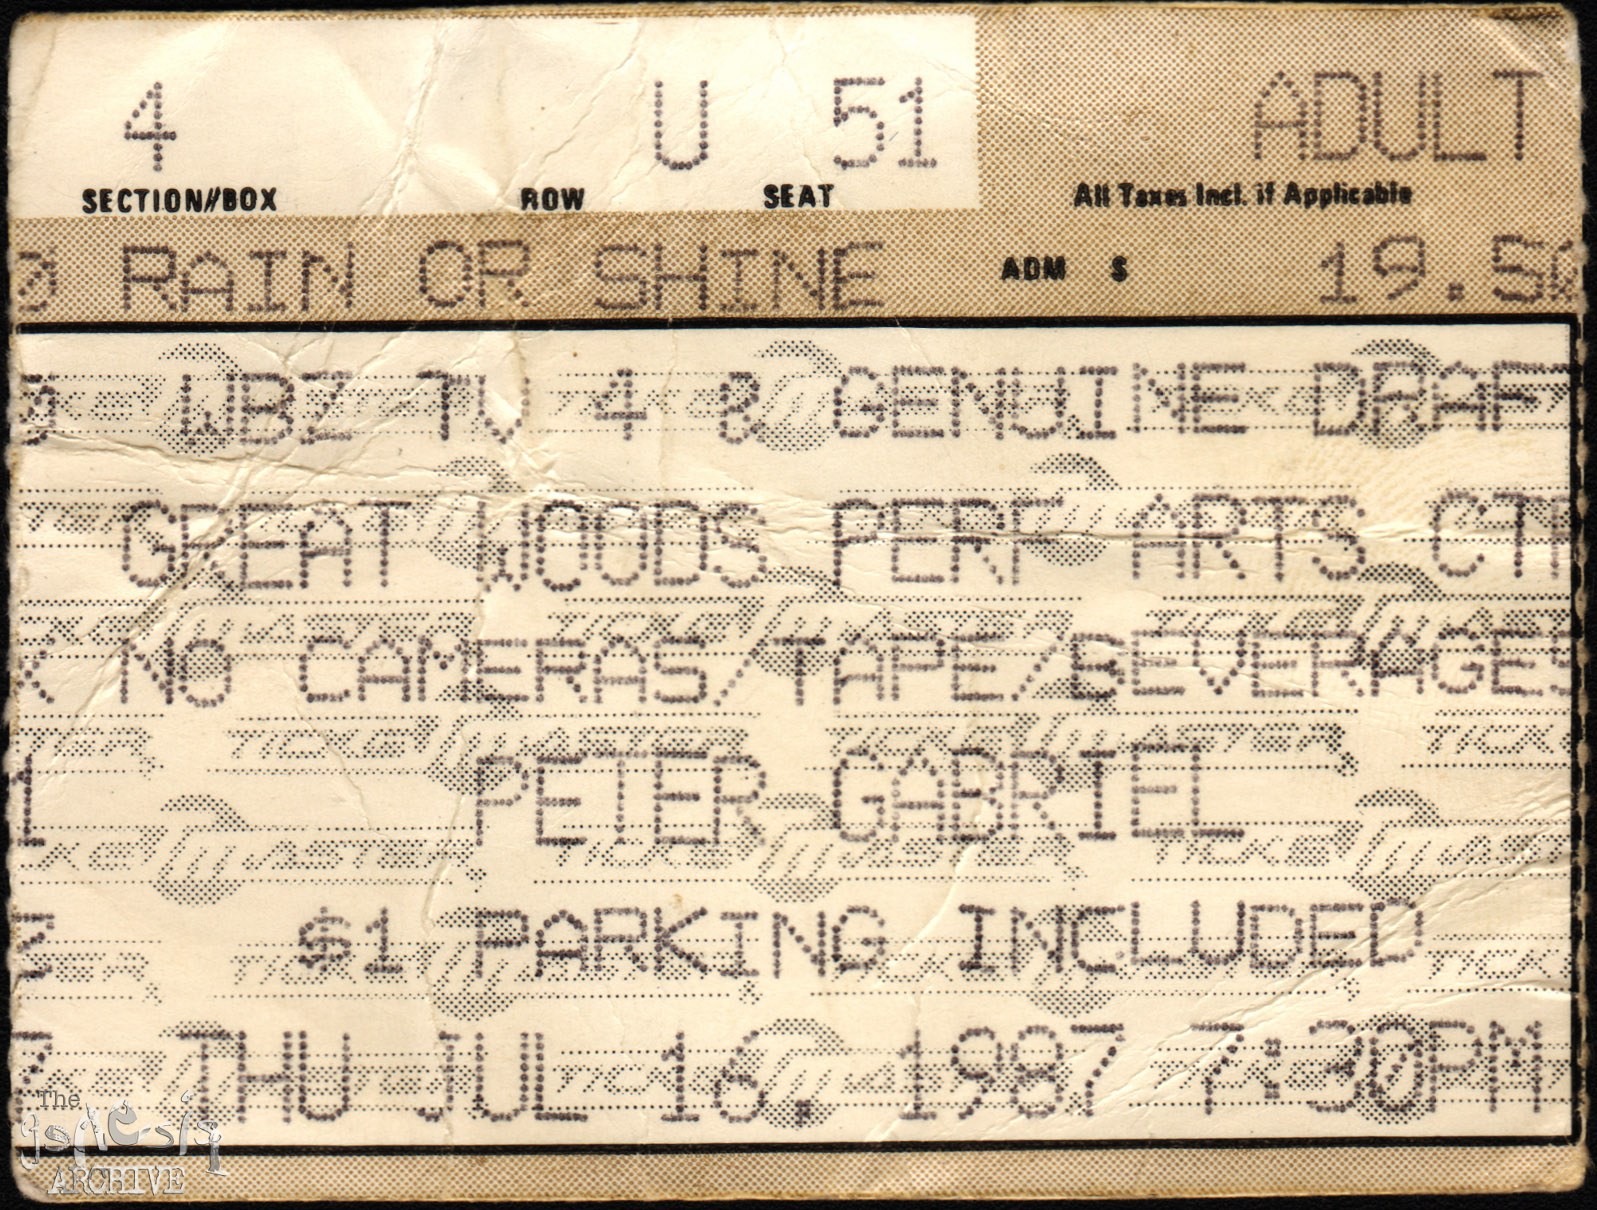 4 U 51 ADULT
SECTION//BOX ROW SEAT All Taxes Incl. if Applicable
RAIN OR SHINE ADM $ 19.50
WBZ TV 4 & GENUINE DRAF
GREAT WOODS PERF ARTS CTR
NO CAMERAS/TAPE/BEVERAGES
PETER GABRIEL
$1 PARKING INCLUDED
THU JUL 16, 1987 7:30PM
The genesis
ARCHIVE